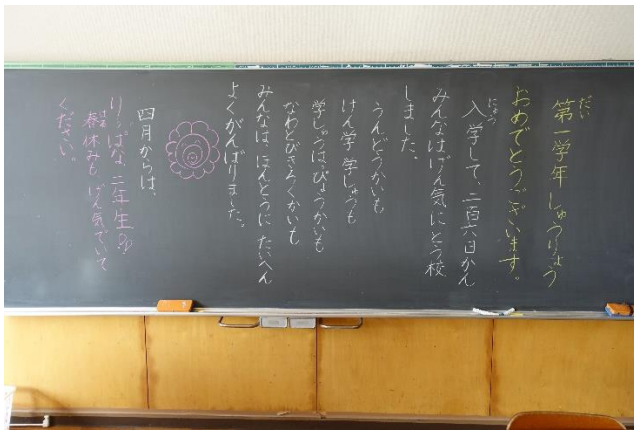 第一学年しゅうりょう
だい
おめでとうございます。
入学して、二百六日かん
にゅう
みんなはげん気にとう校
しました。
うんどうかいも
けん学学しゅうも
学しゅうはっぴょうかいも
なわとびきろくかいも
みんなは、ほんとうに、たいへん
よくがんばりました。
四月からは、
りっぱな二年生
春休みも、げん気でいて
はる
ください。